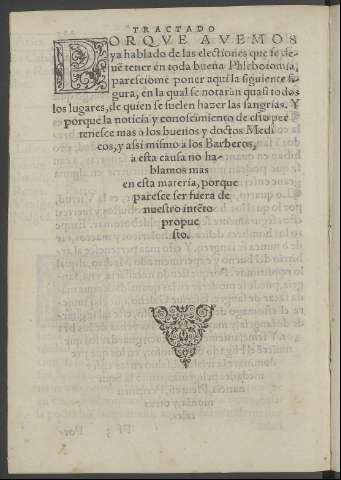 TRACTADO
PORQVE AVEMOS
ya hablado de las electiones que se de-
uē tener en toda buena Phlebotomia,
paresciome poner aquí la siguiente fi-
gura, en la qual se notaràn quasi todos
los lugares, de quien se suelen hazer las sangrias. Y
porque la noticia y conoscimiento de esto per
tenesce mas o los buenos y doctos Medi
cos, y assi mismo a los Barberos,
a esta causa no ha-
blamos mas
en esta materia, porque
paresce ser fuera de
nuestro intēto
propue
sto.